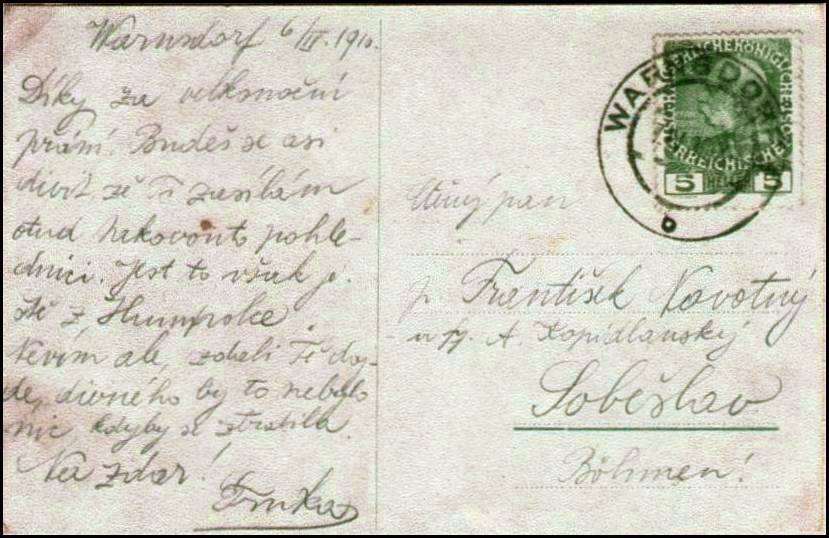 Warnsdorf 6/IV. 1910.
Díky za velkonoční
přání. Budeš se asi
divit že Ti zasílám
otud takovouto pohle-
dnici. Jest to však je-
ště z Humpolce.
Nevím ale, zdali Ti doj-
de, divného by to nebylo
nic, kdyby se ztratila.
Na zdar!
WARNSDORF
5 HELLER 5
Ctěný pan
p. František Novotný
u fy. A. Kopidlanský
Soběslav
Böhmen!